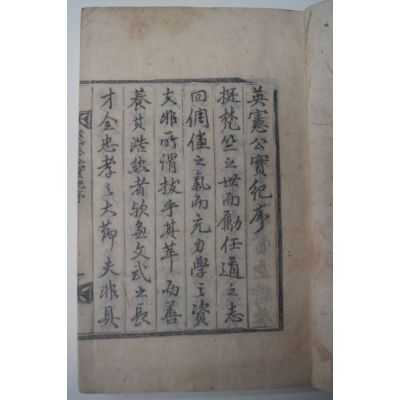 英憲公實紀序
挺梵竺之世而勵任道之志
回倜儻之氣而充力學之資
夫非所謂拔乎其萃而善
養其浩然者欤兼文武之長
才全忠孝之大節夫非具